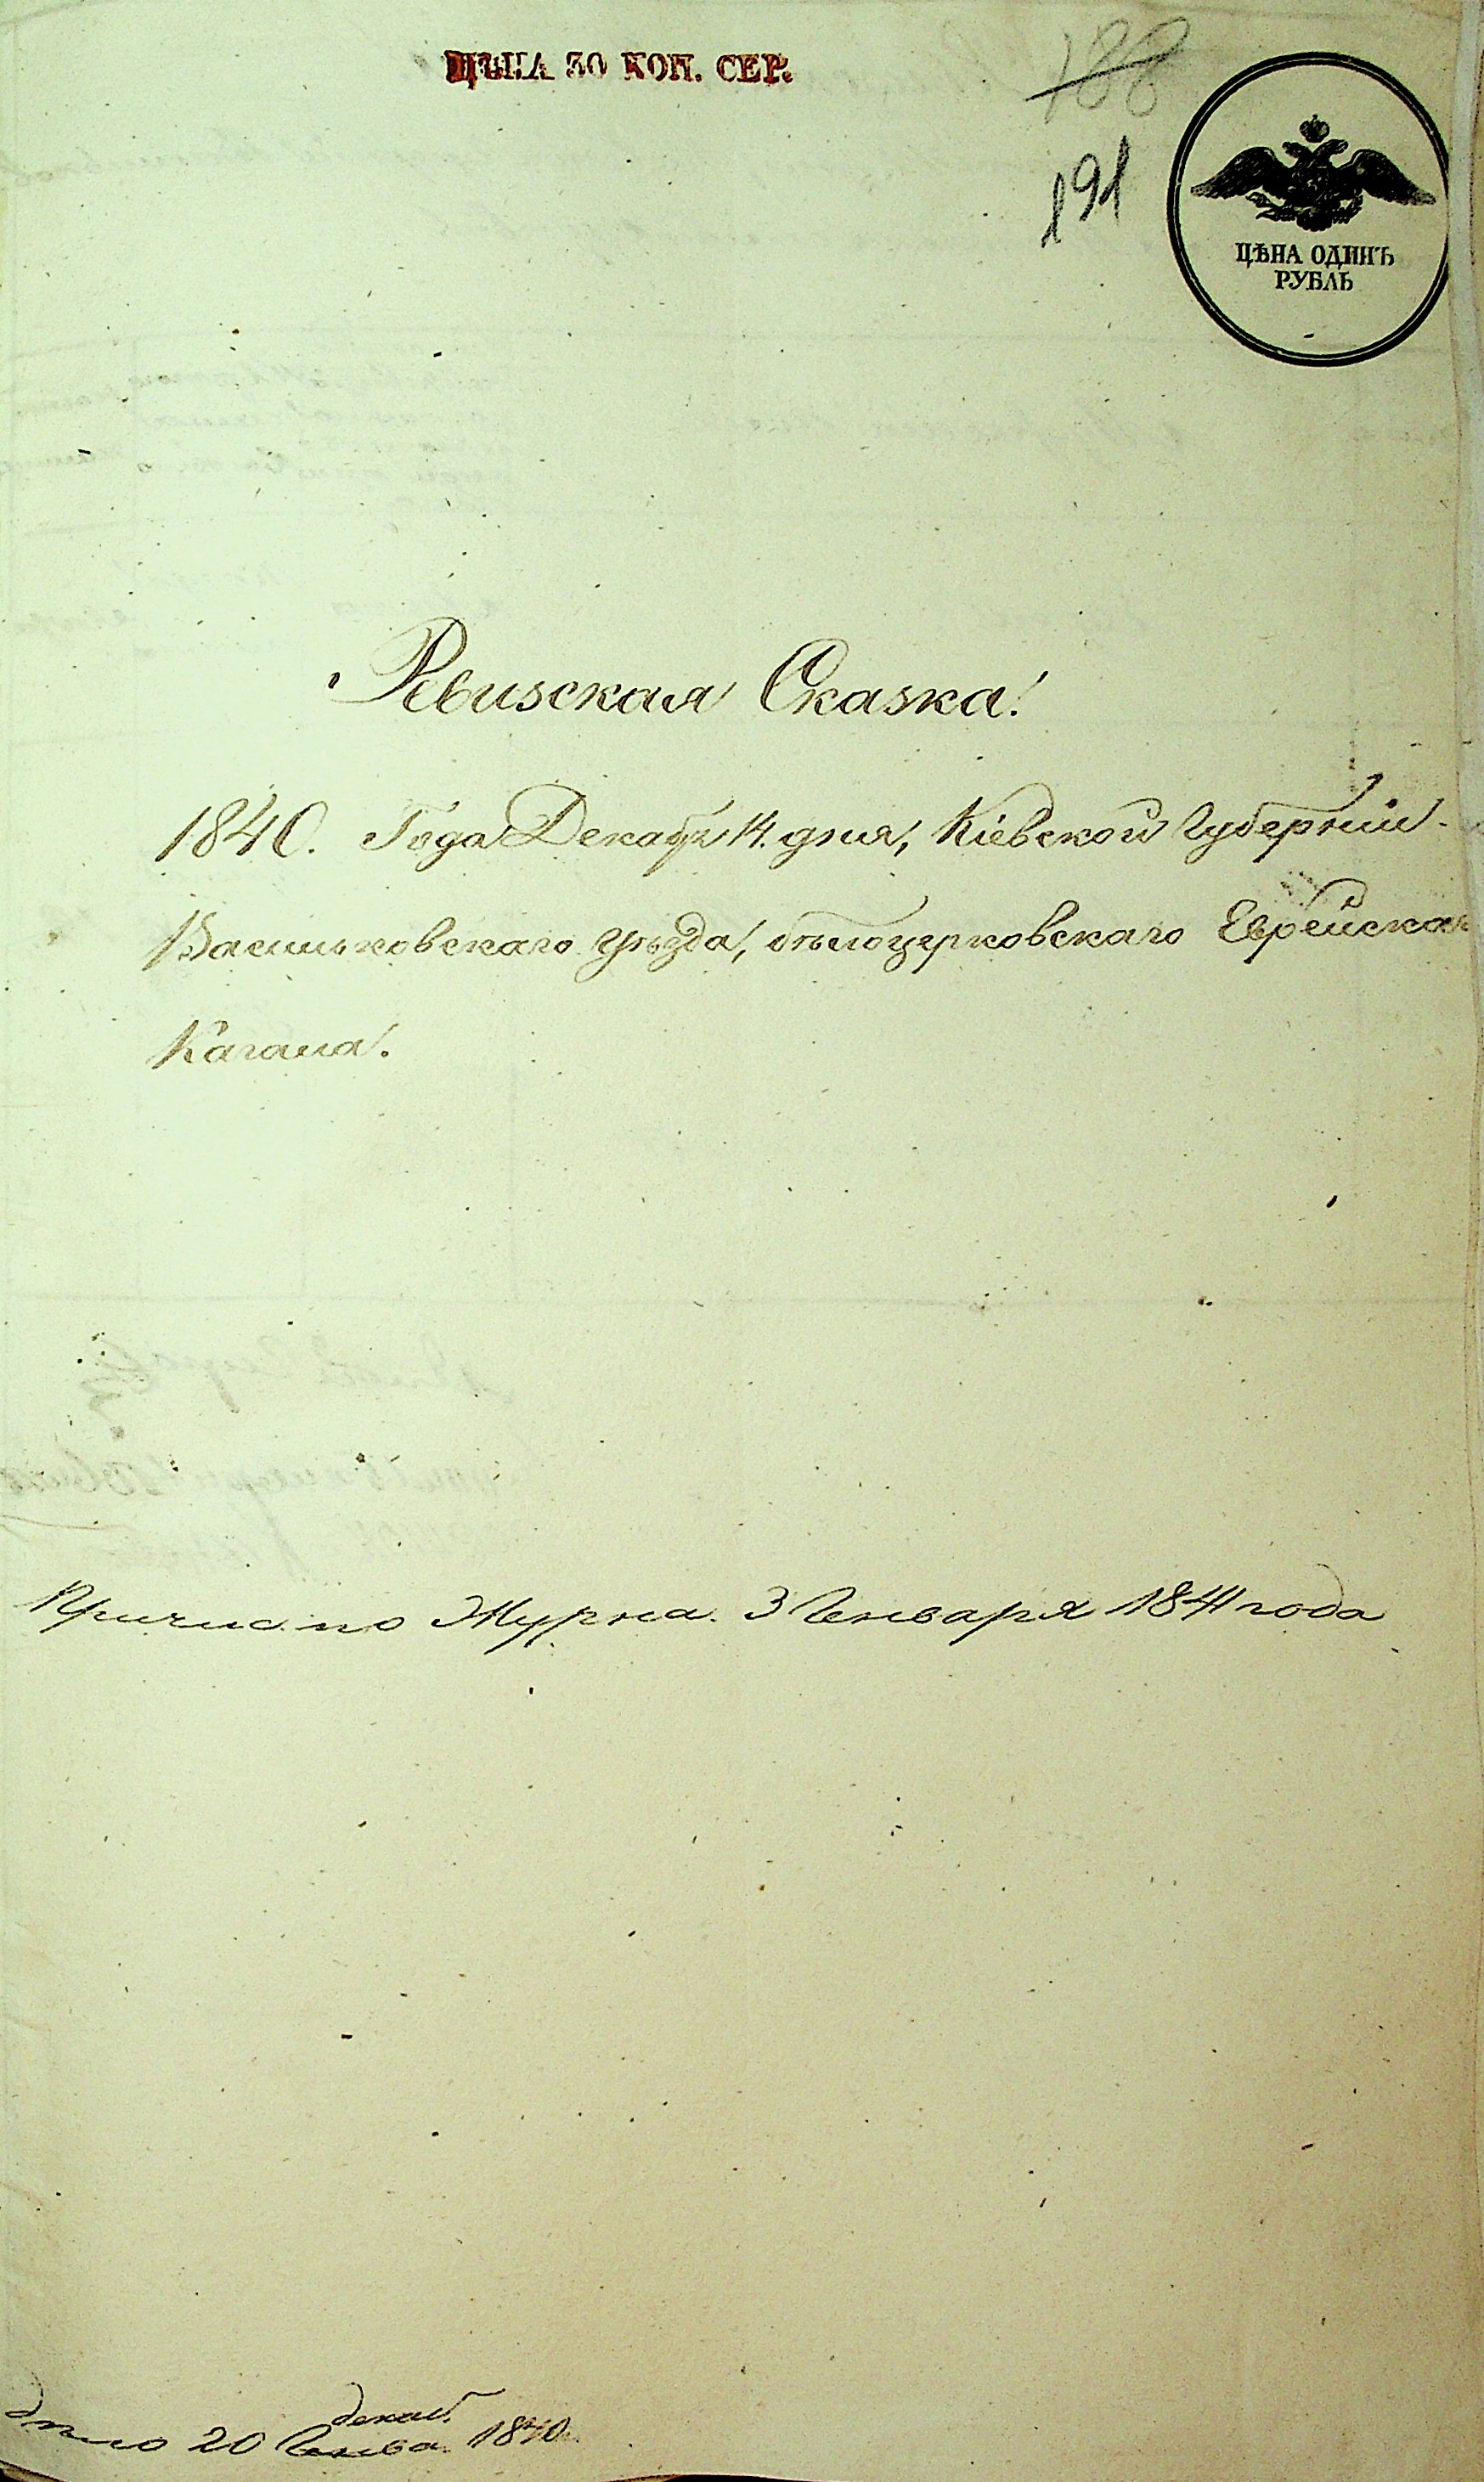 ЦѢНА 30 КОП. СЕР.
188
191
ЦѢНА ОДИНЪ
РУБЛЬ
Ревизская Сказка.
1840. Года Декабря 14. дня, Кіевской Губерніи
Васильковскаго уѣзда, бѣлоцерковскаго Еврейскаго
Кагала.
Причис. по Журна. 3 Генваря 1841 года
декаб.
дѣло 20 Генва. 1840